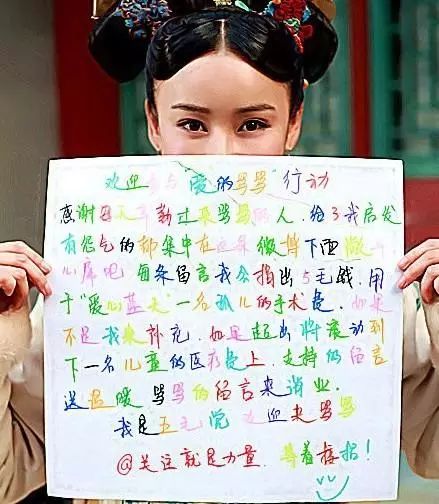 欢迎参与"爱的骂骂"行动
感谢每天辛勤过来骂骂的人.给了我启发
有怨气的都集中在这条微博下面做
心库吧 每条留言我会捐出5毛钱.用
于"爱心蓝天"一名孤儿的手术费.如果
不足我来补充.如果超出将滚动到
下一名儿童的医疗费上.支持的留言
送温暖 骂骂的留言来消业.
我是五毛党 欢迎来骂骂
@关注就是力量.等着捐招!